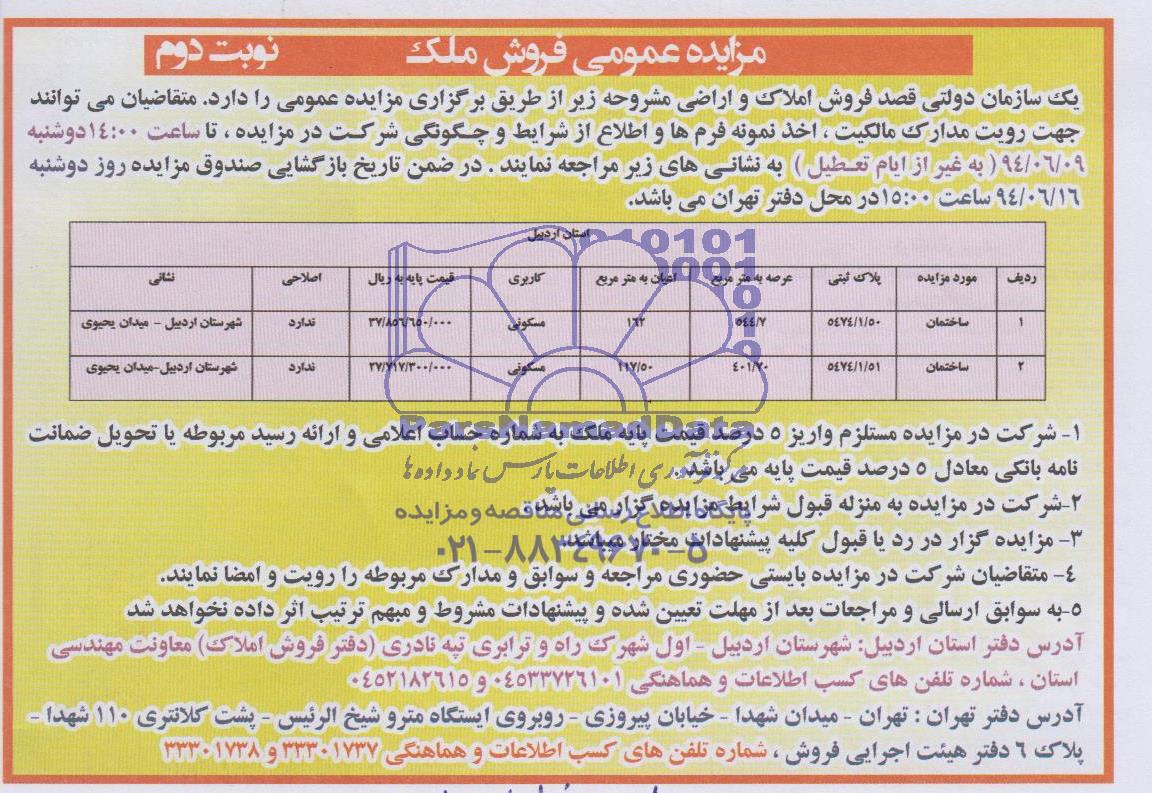 مزایده عمومی فروش ملک نوبت دوم
یک سازمان دولتی قصد فروش املاک و اراضی مشروحه زیر از طریق برگزاری مزایده عمومی را دارد. متقاضیان می توانند
جهت رویت مدارک مالکیت ، اخذ نمونه فرم ها و اطلاع از شرایط و چگونگی شرکت در مزایده ، تا ساعت ۱۴:۰۰ دوشنبه
۹۴/۰۶/۰۹ ( به غیر از ایام تعطیل ) به نشانی های زیر مراجعه نمایند . در ضمن تاریخ بازگشایی صندوق مزایده روز دوشنبه
۹۴/۰۶/۱۶ ساعت ۱۵:۰۰ در محل دفتر تهران می باشد.
استان اردبیل
ردیف مورد مزایده پلاک ثبتی عرصه به متر مربع اعیان به متر مربع کاربری قیمت پایه به ریال اصلاحی نشانی
۱ ساختمان ۵۴۷۴/۱/۵۰ ۵۴۴/۷ ۱۶۲ مسکونی ۳۷/۸۵۶/۶۵۰/۰۰۰ ندارد شهرستان اردبیل - میدان یحیوی
۲ ساختمان ۵۴۷۴/۱/۵۱ ۴۰۱/۷۰ ۱۱۷/۵۰ مسکونی ۲۷/۷۱۷/۳۰۰/۰۰۰ ندارد شهرستان اردبیل-میدان یحیوی
ParsNamadData
۱- شرکت در مزایده مستلزم واریز ۵ درصد قیمت پایه ملک به شماره حساب اعلامی و ارائه رسید مربوطه یا تحویل ضمانت
نامه بانکی معادل ۵ درصد قیمت پایه می باشد.
فرآوری اطلاعات پارس نماد داده ها
۲-شرکت در مزایده به منزله قبول شرایط مزایده گزار می باشد.
پایگاه اطلاع رسانی مناقصه و مزایده
۳- مزایده گزار در رد یا قبول کلیه پیشنهادات مختار میباشد.
۰۲۱-۸۸۳۴۹۶۷۰-۵
۴- متقاضیان شرکت در مزایده بایستی حضوری مراجعه و سوابق و مدارک مربوطه را رویت و امضا نمایند.
۵-به سوابق ارسالی و مراجعات بعد از مهلت تعیین شده و پیشنهادات مشروط و مبهم ترتیب اثر داده نخواهد شد
آدرس دفتر استان اردبیل: شهرستان اردبیل - اول شهرک راه و ترابری تپه نادری (دفتر فروش املاک) معاونت مهندسی
استان ، شماره تلفن های کسب اطلاعات و هماهنگی ۰۴۵۳۳۷۲۶۱۰۱ و ۰۴۵۲۱۸۲۶۱۵
آدرس دفتر تهران : تهران - میدان شهدا - خیابان پیروزی - روبروی ایستگاه مترو شیخ الرئیس - پشت کلانتری ۱۱۰ شهدا -
پلاک ۶ دفتر هیئت اجرایی فروش ، شماره تلفن های کسب اطلاعات و هماهنگی ۳۳۳۰۱۷۳۷ و ۳۳۳۰۱۷۳۸